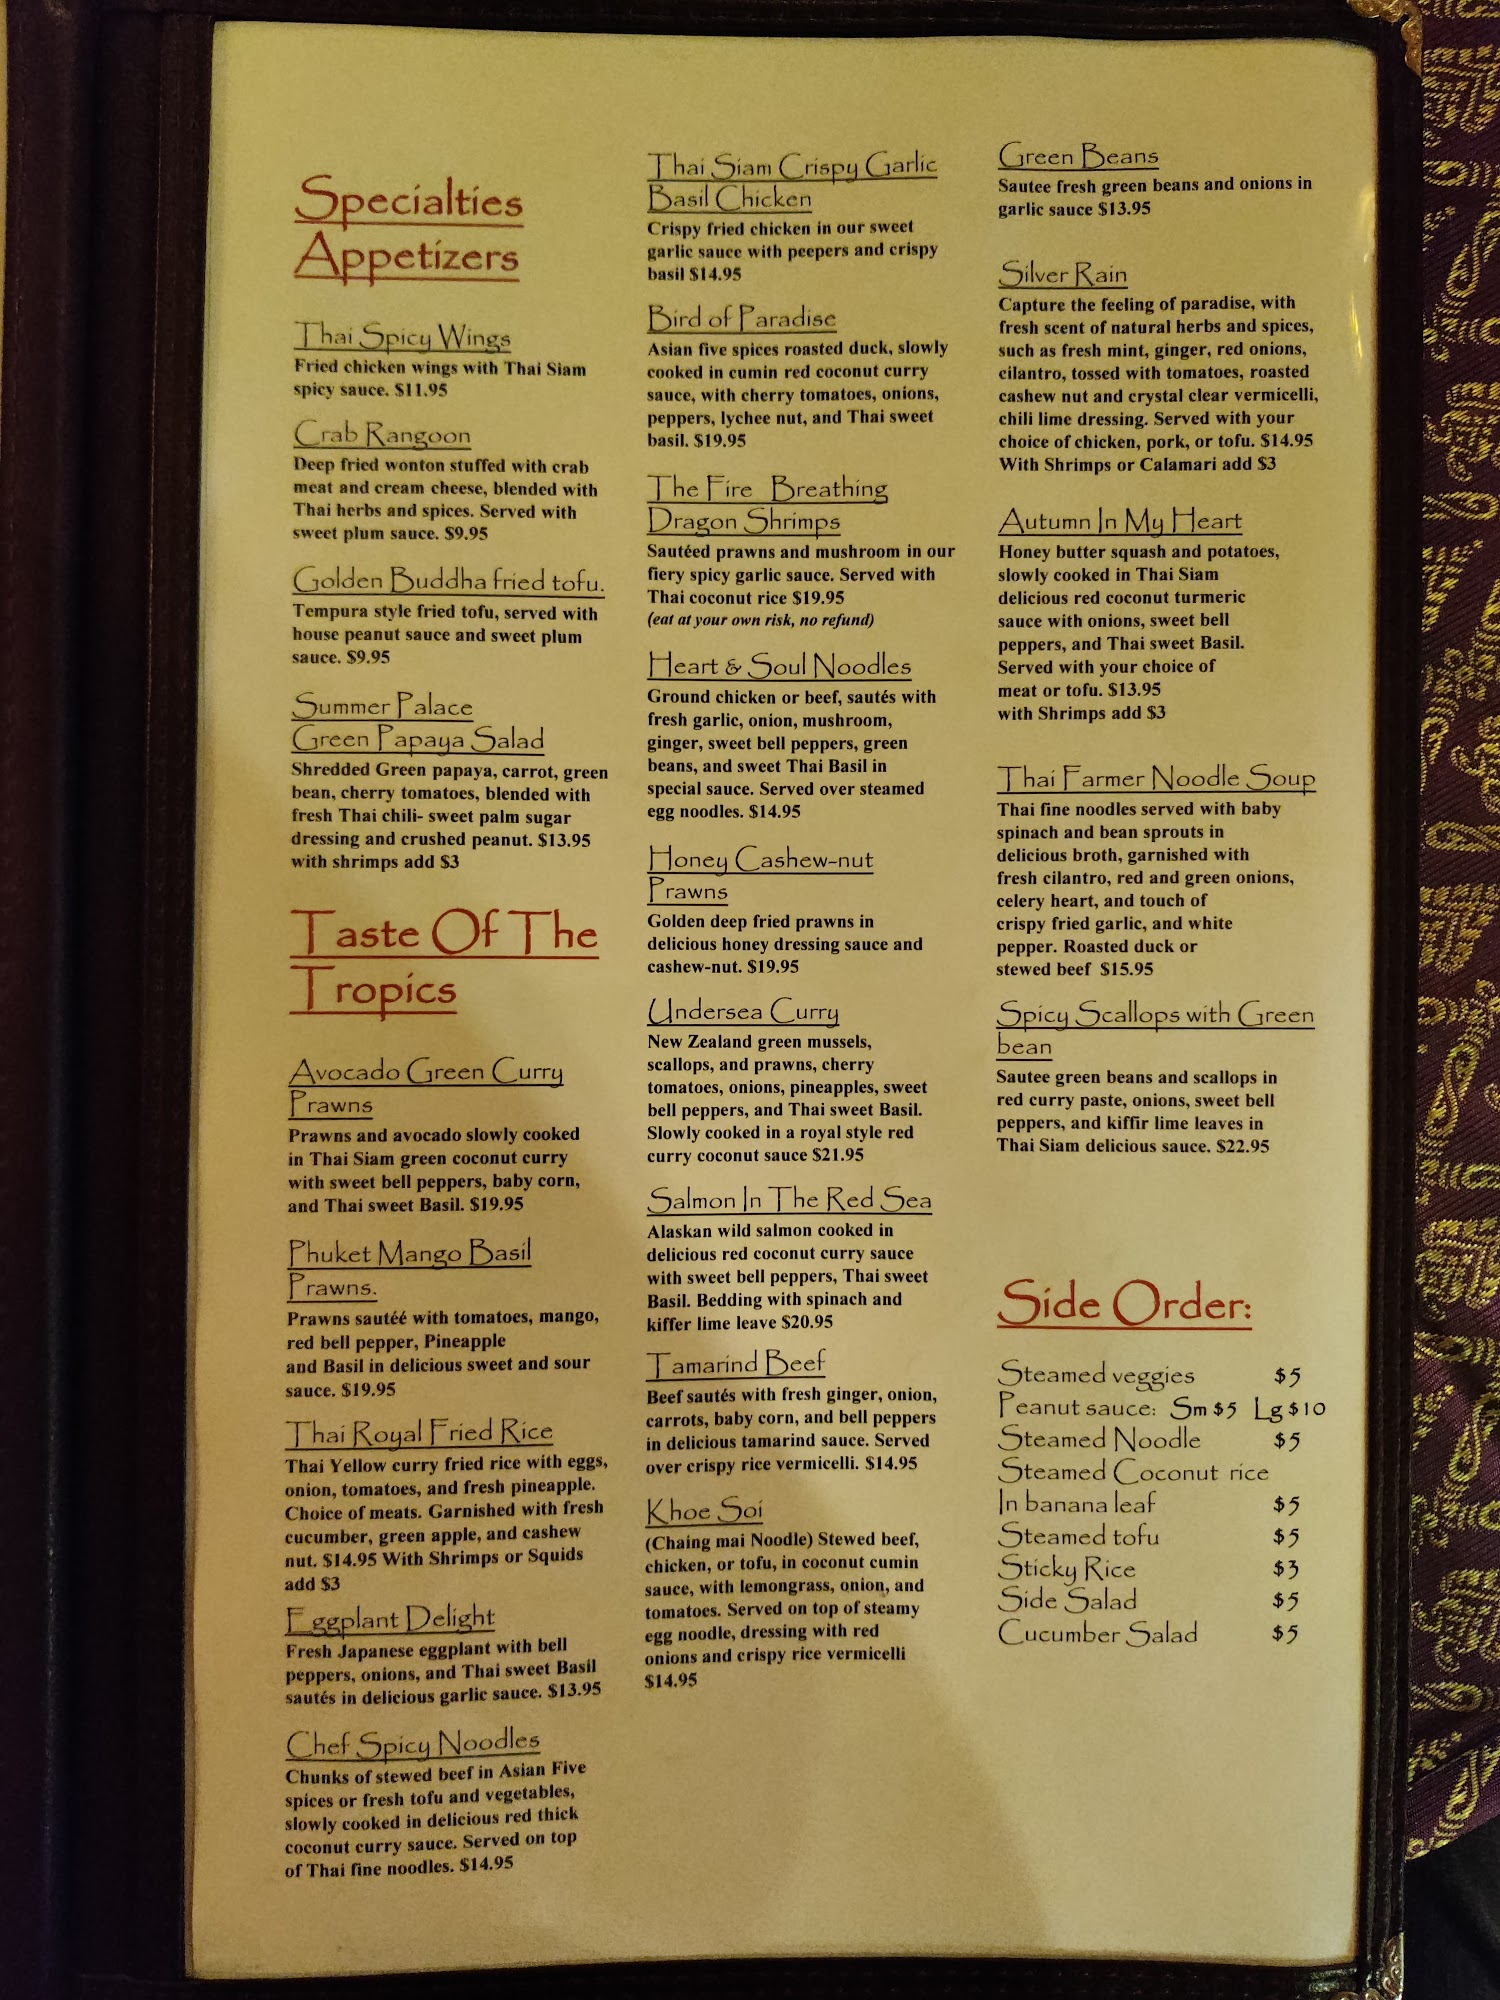 Specialties
Appetizers
Thai Spicy Wings
Fried chicken wings with Thai Siam
spicy sauce. $11.95
Crab Rangoon
Deep fried wonton stuffed with crab
meat and cream cheese, blended with
Thai herbs and spices. Served with
sweet plum sauce. $9.95
Golden Buddha fried tofu.
Tempura style fried tofu, served with
house peanut sauce and sweet plum
sauce. $9.95
Summer Palace
Green Papaya Salad
Shredded Green papaya, carrot, green
bean, cherry tomatoes, blended with
fresh Thai chili- sweet palm sugar
dressing and crushed peanut. $13.95
with shrimps add $3
Taste Of The
Tropics
Avocado Green Curry
Prawns
Prawns and avocado slowly cooked
in Thai Siam green coconut curry
with sweet bell peppers, baby corn,
and Thai sweet Basil. $19.95
Phuket Mango Basil
Prawns.
Prawns sautéé with tomatoes, mango,
red bell pepper, Pineapple
and Basil in delicious sweet and sour
sauce. $19.95
Thai Royal Fried Rice
Thai Yellow curry fried rice with eggs,
onion, tomatoes, and fresh pineapple.
Choice of meats. Garnished with fresh
cucumber, green apple, and cashew
nut. $14.95 With Shrimps or Squids
add $3
Eggplant Delight
Fresh Japanese eggplant with bell
peppers, onions, and Thai sweet Basil
sautés in delicious garlic sauce. $13.95
Chef Spicy Noodles
Chunks of stewed beef in Asian Five
spices or fresh tofu and vegetables,
slowly cooked in delicious red thick
coconut curry sauce. Served on top
of Thai fine noodles. $14.95
Thai Siam Crispy Garlic
Basil Chicken
Crispy fried chicken in our sweet
garlic sauce with peepers and crispy
basil $14.95
Bird of Paradise
Asian five spices roasted duck, slowly
cooked in cumin red coconut curry
sauce, with cherry tomatoes, onions,
peppers, lychee nut, and Thai sweet
basil. $19.95
The Fire Breathing
Dragon Shrimps
Sautéed prawns and mushroom in our
fiery spicy garlic sauce. Served with
Thai coconut rice $19.95
(eat at your own risk, no refund)
Heart & Soul Noodles
Ground chicken or beef, sautés with
fresh garlic, onion, mushroom,
ginger, sweet bell peppers, green
beans, and sweet Thai Basil in
special sauce. Served over steamed
egg noodles. $14.95
Honey Cashew-nut
Prawns
Golden deep fried prawns in
delicious honey dressing sauce and
cashew-nut. $19.95
Undersea Curry
New Zealand green mussels,
scallops, and prawns, cherry
tomatoes, onions, pineapples, sweet
bell peppers, and Thai sweet Basil.
Slowly cooked in a royal style red
curry coconut sauce $21.95
Salmon In The Red Sea
Alaskan wild salmon cooked in
delicious red coconut curry sauce
with sweet bell peppers, Thai sweet
Basil. Bedding with spinach and
kiffer lime leave $20.95
Tamarind Beef
Beef sautés with fresh ginger, onion,
carrots, baby corn, and bell peppers
in delicious tamarind sauce. Served
over crispy rice vermicelli. $14.95
Khoe Soi
(Chaing mai Noodle) Stewed beef,
chicken, or tofu, in coconut cumin
sauce, with lemongrass, onion, and
tomatoes. Served on top of steamy
egg noodle, dressing with red
onions and crispy rice vermicelli
$14.95
Green Beans
Sautee fresh green beans and onions in
garlic sauce $13.95
Silver Rain
Capture the feeling of paradise, with
fresh scent of natural herbs and spices,
such as fresh mint, ginger, red onions,
cilantro, tossed with tomatoes, roasted
cashew nut and crystal clear vermicelli,
chili lime dressing. Served with your
choice of chicken, pork, or tofu. $14.95
With Shrimps or Calamari add $3
Autumn In My Heart
Honey butter squash and potatoes,
slowly cooked in Thai Siam
delicious red coconut turmeric
sauce with onions, sweet bell
peppers, and Thai sweet Basil.
Served with your choice of
meat or tofu. $13.95
with Shrimps add $3
Thai Farmer Noodle Soup
Thai fine noodles served with baby
spinach and bean sprouts in
delicious broth, garnished with
fresh cilantro, red and green onions,
celery heart, and touch of
crispy fried garlic, and white
pepper. Roasted duck or
stewed beef $15.95
Spicy Scallops with Green
bean
Sautee green beans and scallops in
red curry paste, onions, sweet bell
peppers, and kiffir lime leaves in
Thai Siam delicious sauce. $22.95
Side Order:
Steamed veggies $5
Peanut sauce: Sm $5 Lg $10
Steamed Noodle $5
Steamed Coconut rice
In banana leaf $5
Steamed tofu $5
Sticky Rice $3
Side Salad $5
Cucumber Salad $5